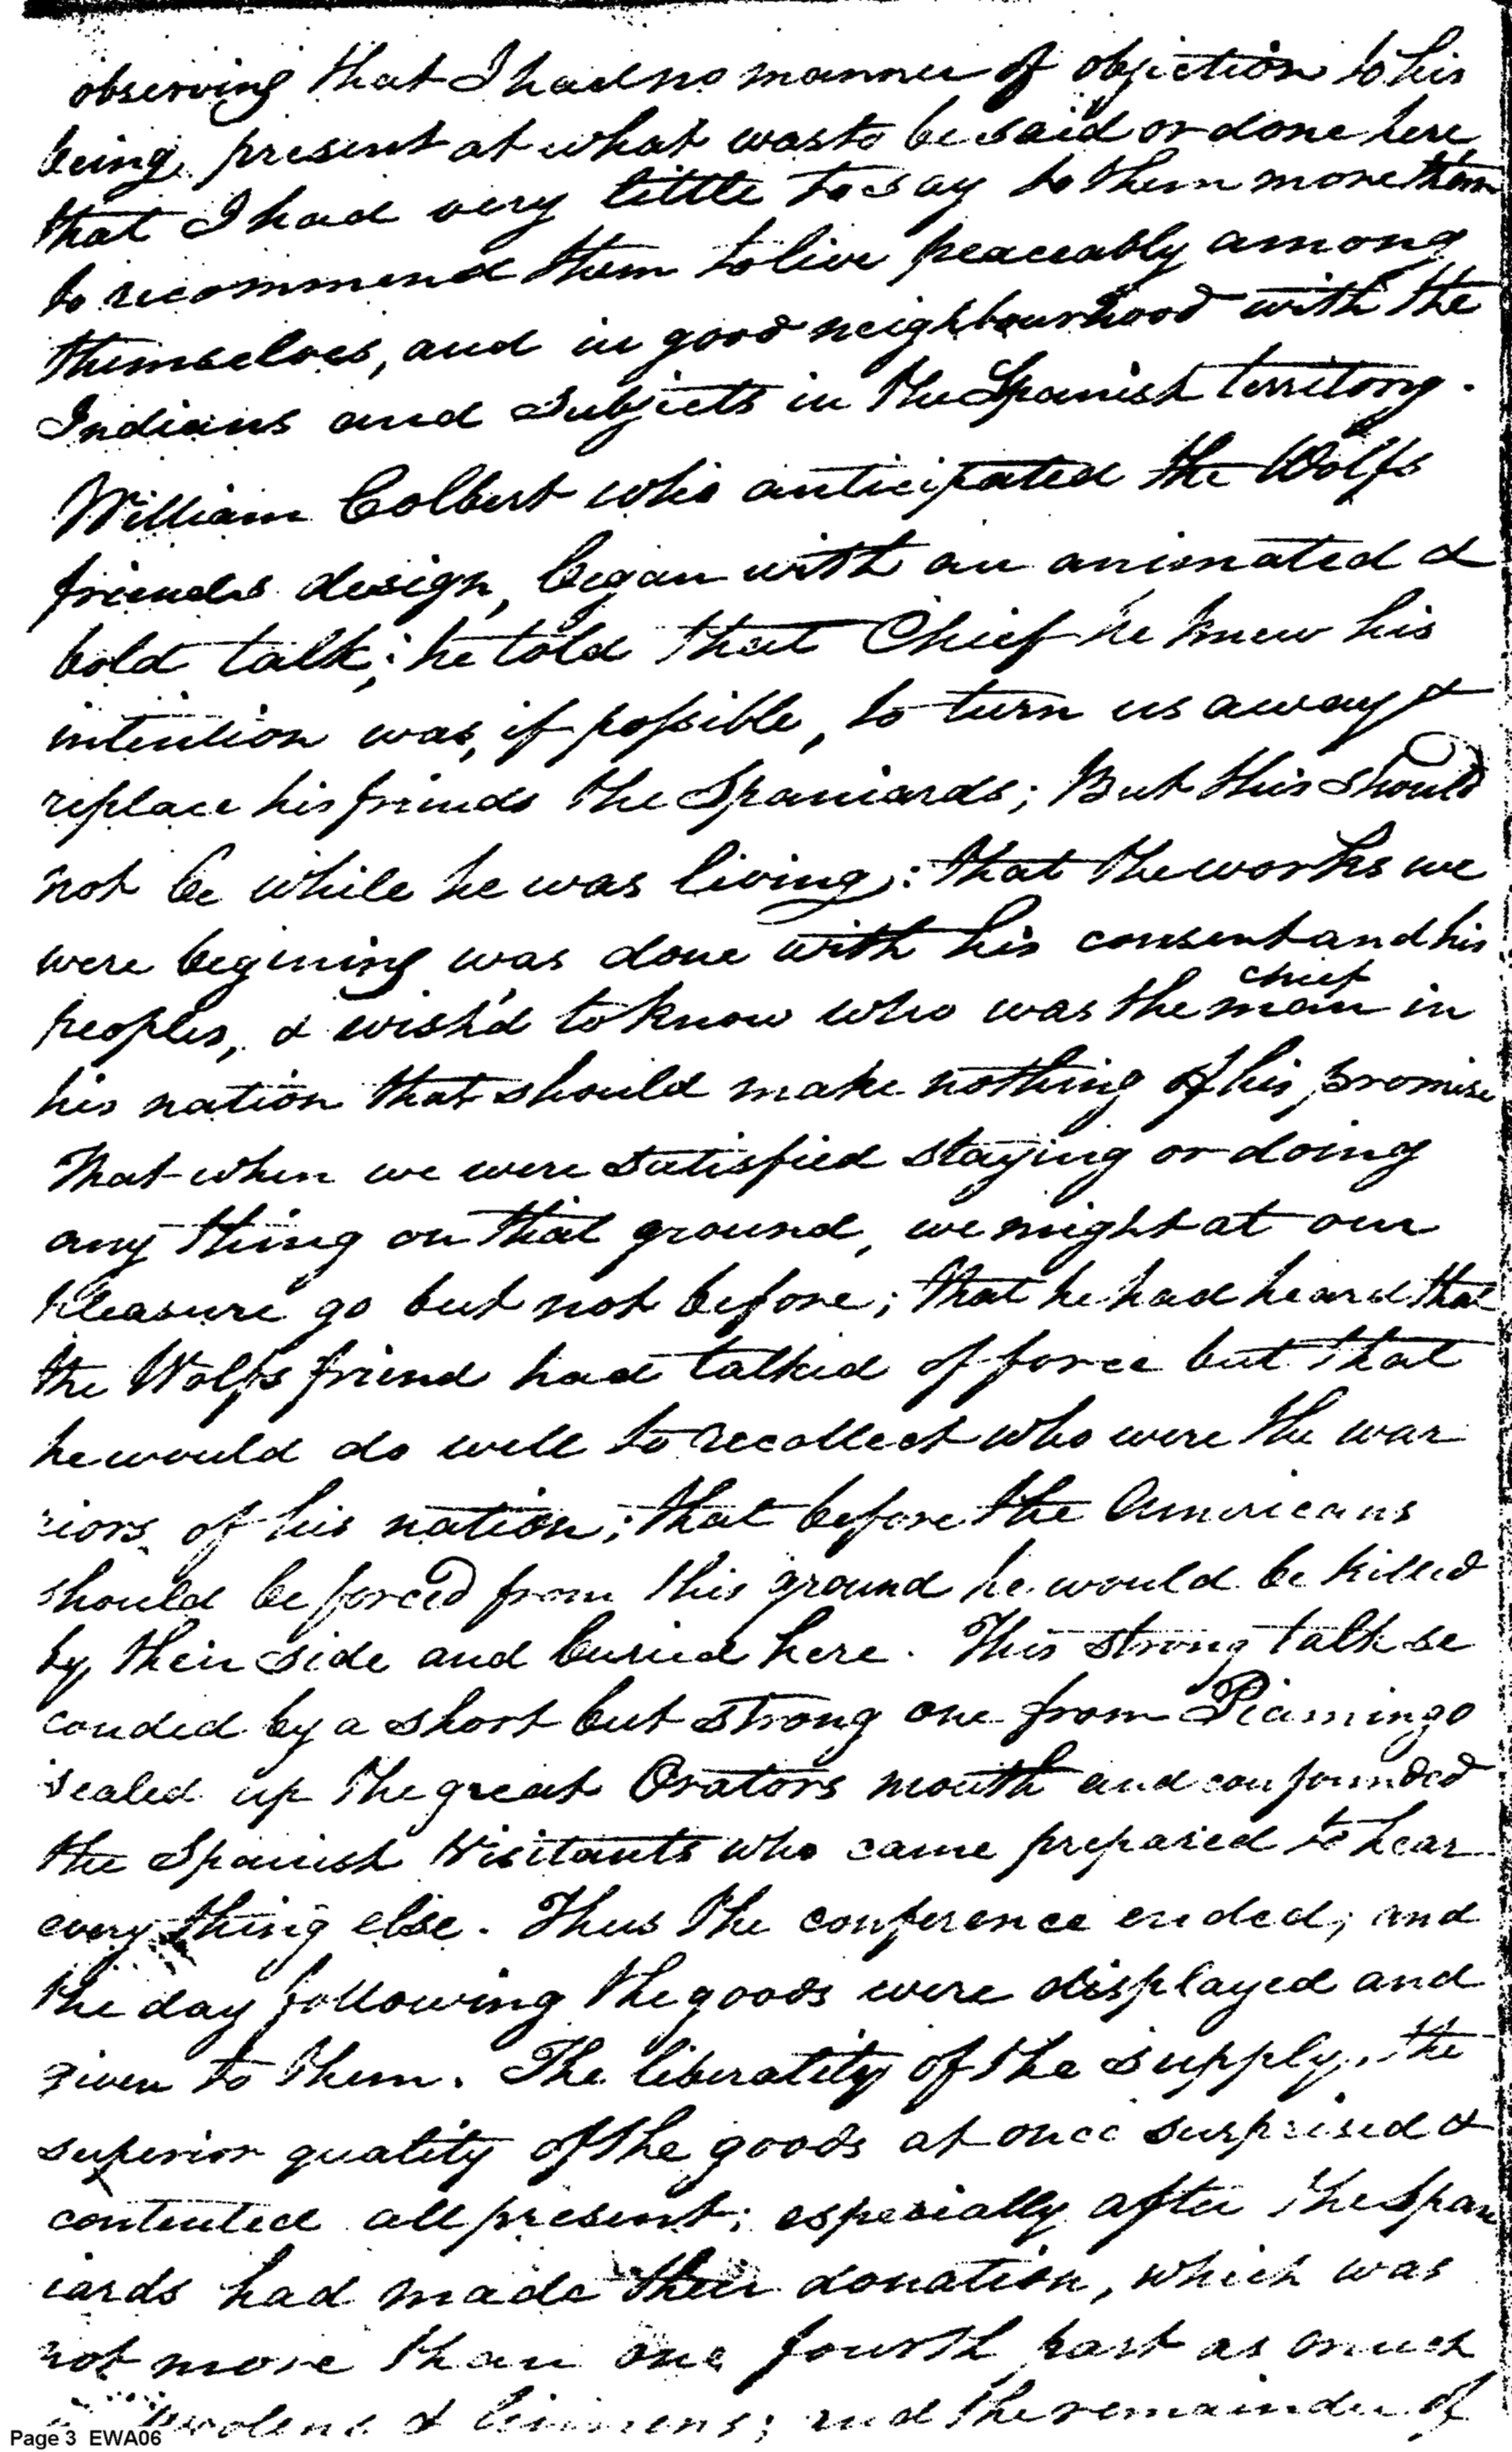 observing that I had no manner of objection to his
being present at what was to be said or done here
that I had very little to say to them more than
to recommend them to live peaceably among
themselves, and in good neighbourhood with the
Indians and subjects in the Spanish territory.
William Colbert who anticipated the Wolfs
friends design, began with an animated &
bold talk; he told that Chief he knew his
intention was, if possible, to turn us away &
replace his friends the Spaniards; But this should
not be while he was living: that the works we
were begining was done with his consent and his
peoples, & wish'd to know who was the chief man in
his nation that should make nothing of his promise
That when we were satisfied staying or doing
any thing on that ground, we might at our
pleasure go but not before; that he had heard that
the Wolfs friend had talked of force but that
he would do well to recollect who were the war
riors of his nation; that before the Americans
should be forced from this ground he would be killed
by their side and buried here. This strong talk se
conded by a short but strong one from Piamingo
sealed up the great Orators mouth and confounded
the Spanish Visitants who came prepared to hear
every thing else. Thus the conference ended; and
the day following the goods were displayed and
given to them. The liberality of the supply, the
superior quality of the goods at once surprised &
contented all present; especially after the Span
iards had made their donation, which was
not more than one fourth part as much
woolens & linnens; and the remainder of
Page 3 EWA06